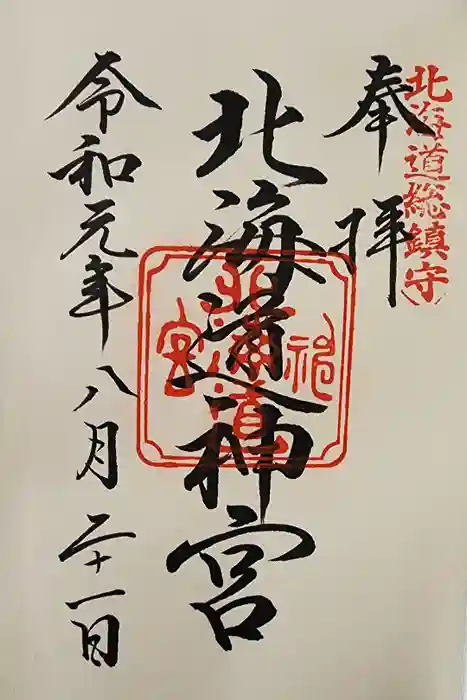 北海道総鎮守
奉拝
北海道神宮
北海道神宮
令和元年八月二十一日